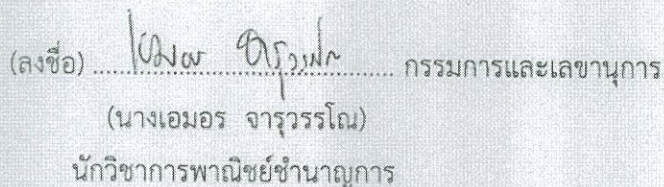 (ลงชื่อ) เอมอร จารุวรรโณ กรรมการและเลขานุการ
(นางเอมอร จารุวรรโณ)
นักวิชาการพาณิชย์ชำนาญการ